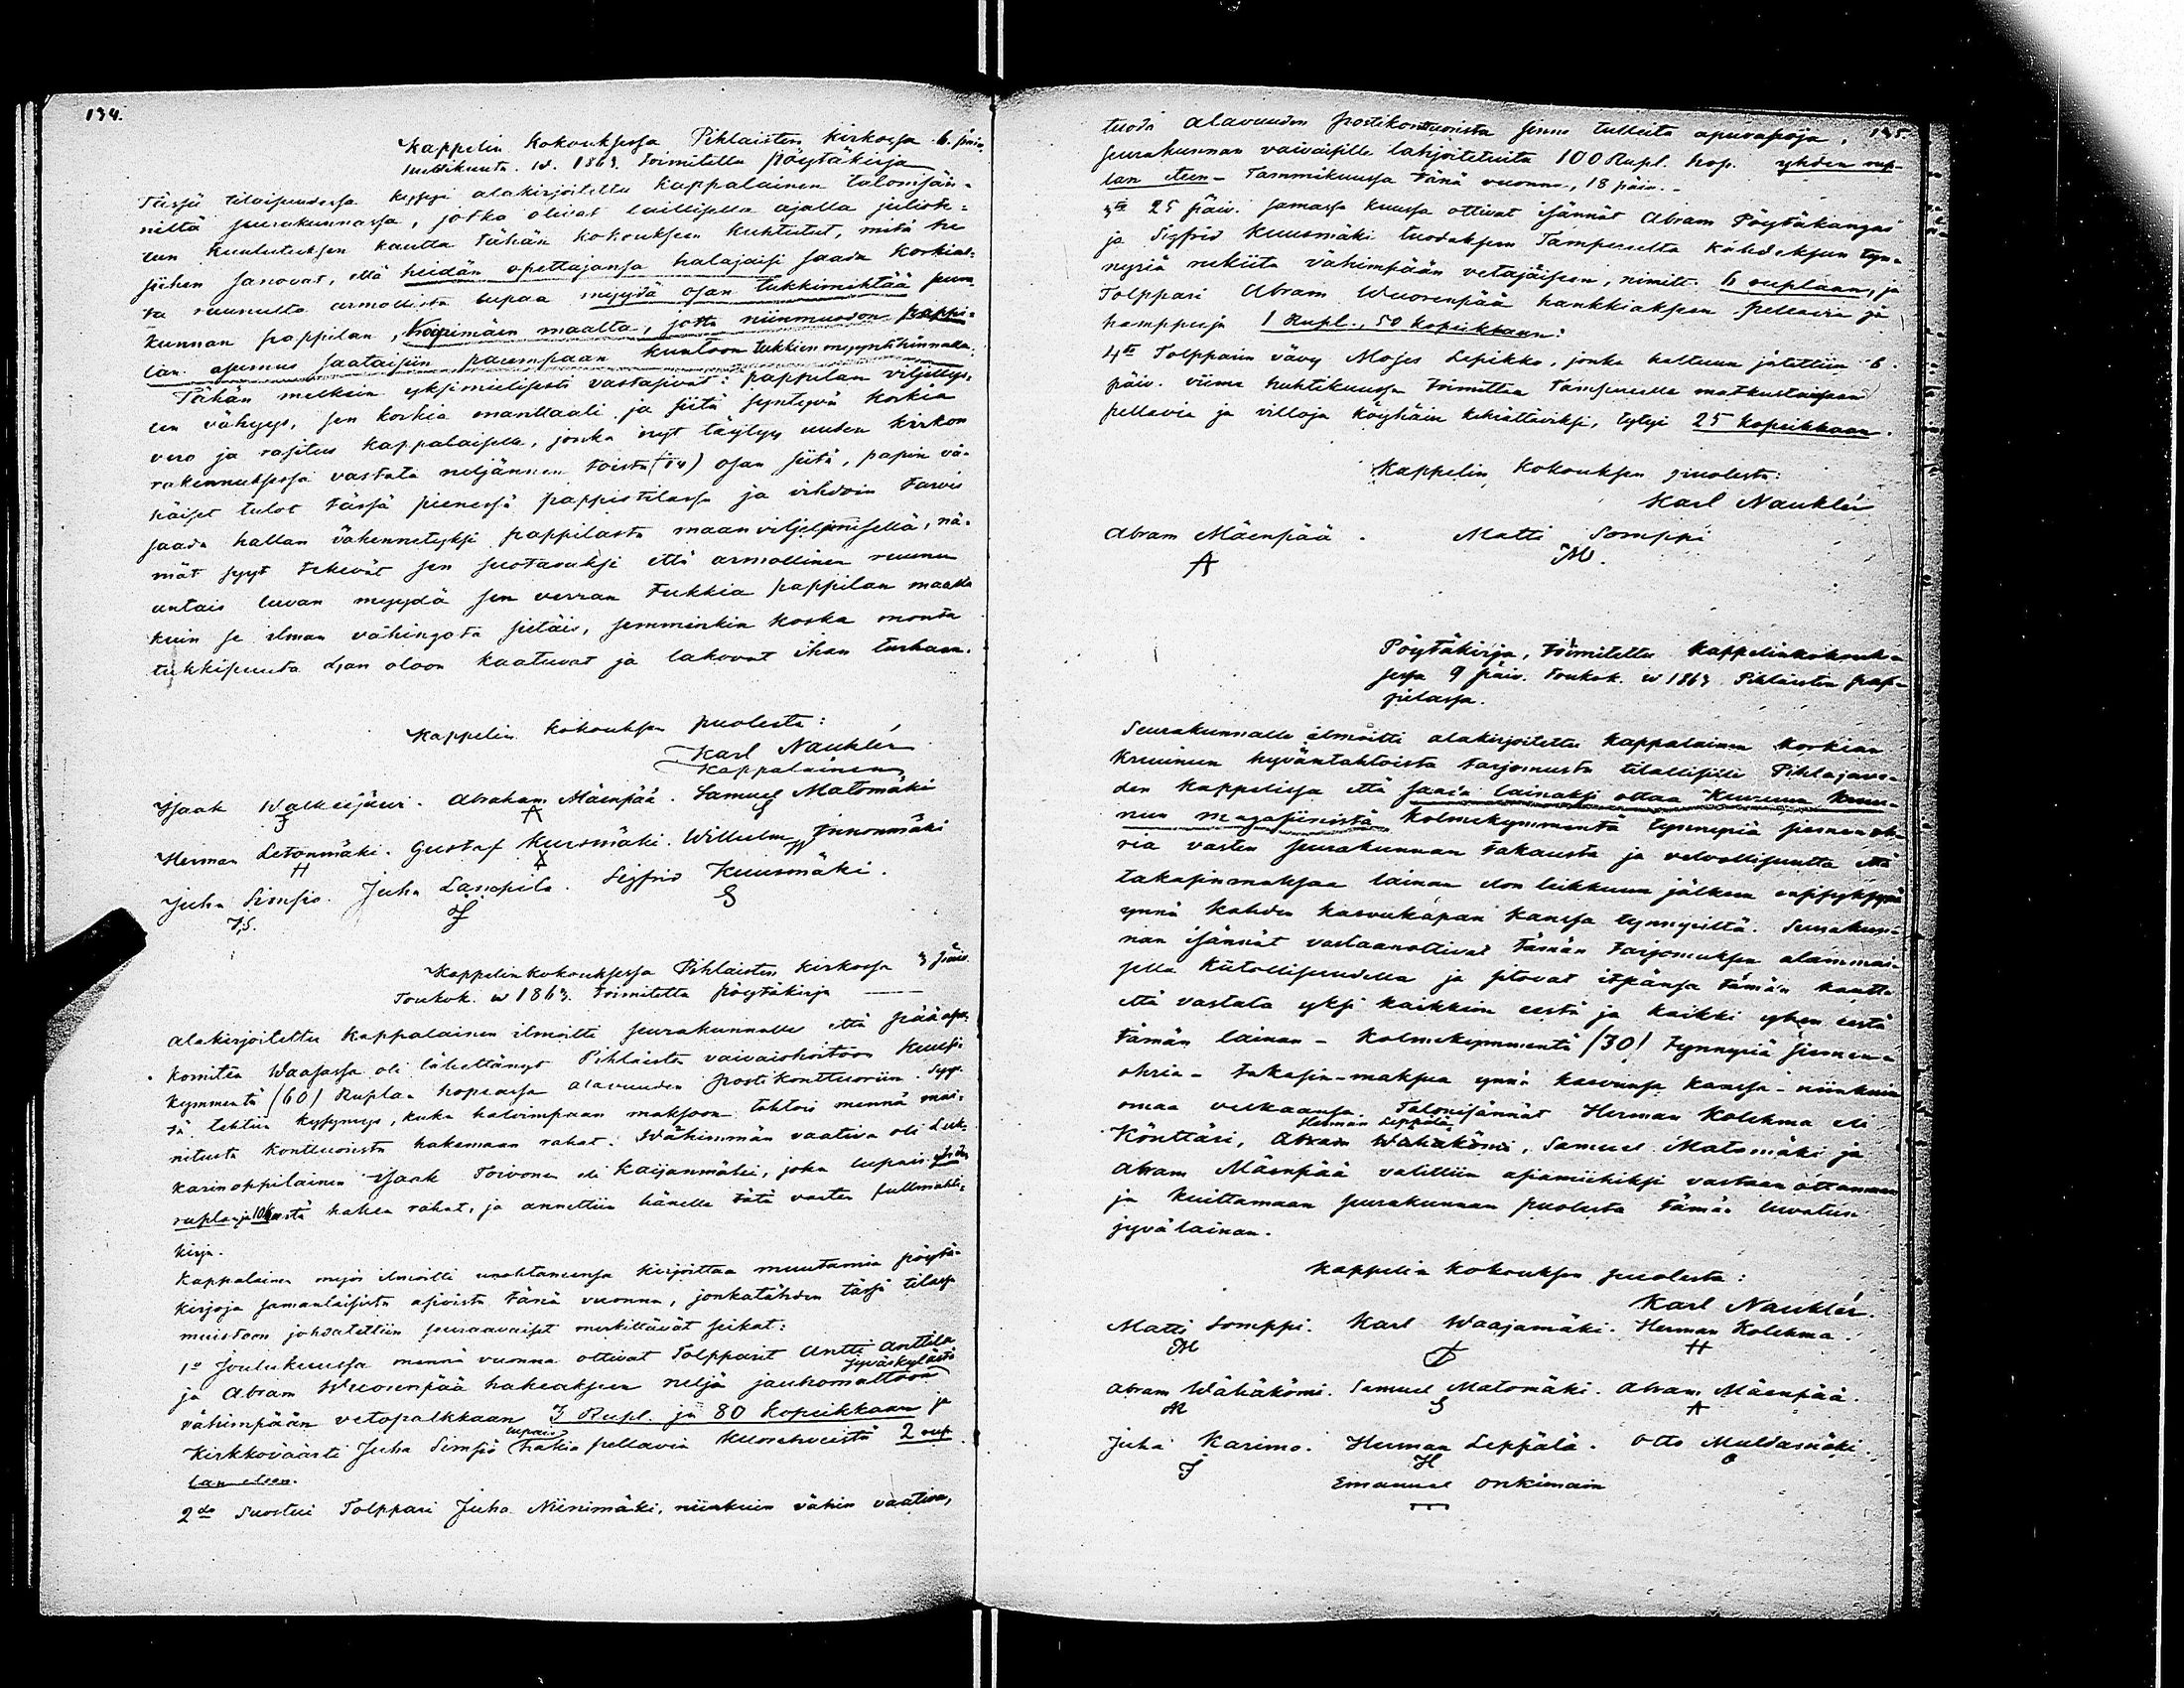 134.
Kappelin Kokouksessa Pihlaisten kirkossa 6. päiv.
huhtikuuta. w. 1863. toimitettu pöytäkirja
Tässä tilaisuudessa kysyi alakirjoitettu Kappalainen talonisän-
niltä seurakunnassa, jotka olivat laillisella ajalla julist-
tun kuulutuksen kautta tähän kokoukseen kuhtutut, mitä he
siihen sanovat, että heidän opettajansa halajaisi saada korkial-
ta ruunulta armollista lupaa myydä osan tukkimihtää seura-
kunnan pappilan, maalta, jotta niinmuodon pappi-
lan asumus saataisiin parempaan kuntoon tukkien myyntihinnalla.
Tähän melkein yksimielisesti vastasivat: pappilan viljellys-
sen vähyys, sen korkia manttaali ja siitä syntyvä korkia
vero ja rasitus kappalaiselle, jonka nyt täytyy uuden kirkon
rakennuksessa vastata neljännen toista (14) osan siitä, papin vä-
häiset tulot tässä pienessä pappistilassa ja vihdoin tarvis
saada hallan vähennetyksi pappilasta maanviljelemisellä, nä-
mät syyt tekevät sen suotavaksi että armollinen ruunu
antais luvan myydä sen verran tukkia pappilan maalta
kuin se ilman vahingota sietäis, semminkin koska monta
tukkipuuta ajan oloon kaatuvat ja lahovat ihan turhaan.
Kappelin kokouksen puolesta:
Karl Nauklér
Kappalainen
Isaak Walkeejärvi. Abraham Mäenpää. Samuel Matomäki
I A S
Herman Letonmäki. Gustaf Kuusmäki. Wilhelm Innonmäki
H X W
Juha Simpio. Juha Lanapila. Sigfrid Kuusmäki.
J.S. J S
Kappelinkokouksessa Pihlaisten kirkossa 3 päiv.
Toukok. w 1863. toimitettu pöytäkirja
Alakirjoitettu Kappalainen ilmoitti seurakunnalle että pää apu-
komitea Waasassa oli lähettänyt Pihlaisten vaivaishoitoon Kuusi-
kymmentä (60) Ruplaa hopeassa Alavuuden postikonttuoriin. Syy-
tä tehtiin kysymys, kuka halvimpaan maksoon tahtois mennä mai-
nitusta konttuorista hakemaan rahat. Wähimmän vaativa oli Luk-
karinoppilainen Isaak Toivonen eli Kaijanmäki, joka lupais yhden
ruplan ja 10 k:sta hakea rahat, ja annettiin hänelle tätä varten fullmahti-
kirja.
Kappalainen myös ilmoitti unohtaneensa kirjoittaa muutamia pöytä-
kirjoja samanlaisista asioista tänä vuonna, jonkatähden tässä tilassa
muistoon johdatettiin seuraavaiset merkittävät seikat:
1o Joulukuussa mennä vuonna ottivat Tolpparit Antti Anttila
Jyväskylästä
ja Abram Wuorenpää hakeakseen neljä jauhomattoa
vähimpään vetopalkkaan 3 Rupl. ja 80 kopeikkaan ja
lupais
Kirkkoväärti Juha Simpiö hakia pellavia Kuorehveistä 2 rup-
lan eteen.
2do Suostui Tolppari Juha Niinimäki, niinkuin vähin vaativa,
135.
tuoda Alavuuden postikonttuorista sinne tulleita apuvaroja.
seurakunnan vaivaisille lahjoitetuita 100 Rupl. hop. yhden rup-
lan eteen - Tammikuussa tänä vuonna, 18 päiv. -
3o 25 päiv. samassa kuussa ottivat isännät Abram Pöytäkangas
ja Sigfrid Kuusmäki tuodaksen Tampereelta kahdeksan tyn-
nyriä rukiita vähimpään vetajäiseen, nimitt. 6 ruplaan, ja
Tolppari Abram Wuorenpää hankkiaksen pellavia ja
hamppuja 1 Rupl., 50 kopeikkaan:
4to Tolpparin vävy Moses Lepikko, jonka haltuun jätettiin 6.
päiv. viime huhtikuussa toimittaa Tampereelle matkustaissaan
pellavia ja villoja köyhäin kehrättäviksi, tytyi 25 kopeikkaan.
Kappelin Kokouksen puolesta:
Karl Nauklér
Abram Mäenpää. Matti Somppi
A M.
Pöytäkirja, toimitettu kappelinkokouk-
sessa 9 päiv. toukok. w 1863 Pihlaisten pap-
pilassa.
Seurakunnalle ilmoitti alakirjoitettu Kappalainen korkian
Kruunun hyväntahtoista tarjomusta tilallisille Pihlajave-
den Kappelissa että saada lainaksi ottaa Keuruun kruu-
nun magasiinistä kolmekymmentä tynnyriä siemen oh-
ria vasten seurakunnan takausta ja velvollisuutta että
takasinmaksaa lainaa elon leikkuun jälkeen
ynnä kahden kasvukapan kanssa tynnyriltä. Seurakun-
nan isännät vastaanottivat tämän tarjomuksen alammai-
sella kiitollisuudella ja sitovat itsiänsä tämän kautta
että vastata yksi kaikkein eestä ja kaikki yhen eestä
tämän lainan - kolmekymmentä (30) tynnyriä siemen-
ohria - takasin-maksua ynnä kasvunsa kanssa - niinkuin
omaa velkaansa. Talonisännät Herman Kolehma eli
Herman Leppälä
Könttäri, Abram Wähäkömi, Samuel Matomäki ja
Abram Mäenpää valittiin asiamiehiksi vastaan ottamaan
ja kuittamaan seurakunnan puolesta tämän luvatun
jyvälainan.
Kappelin Kokouksen puolesta:
Karl Nauklér.
Matti Somppi. Karl Waajamäki. Herman Kolehma.
M H
Abram Wähäkömi. Samuel Matomäki. Abram Mäenpää.
S A
Juha Karimo. Herman Leppälä. Otto Multamäki.
J H O
Emanuel Onkimain